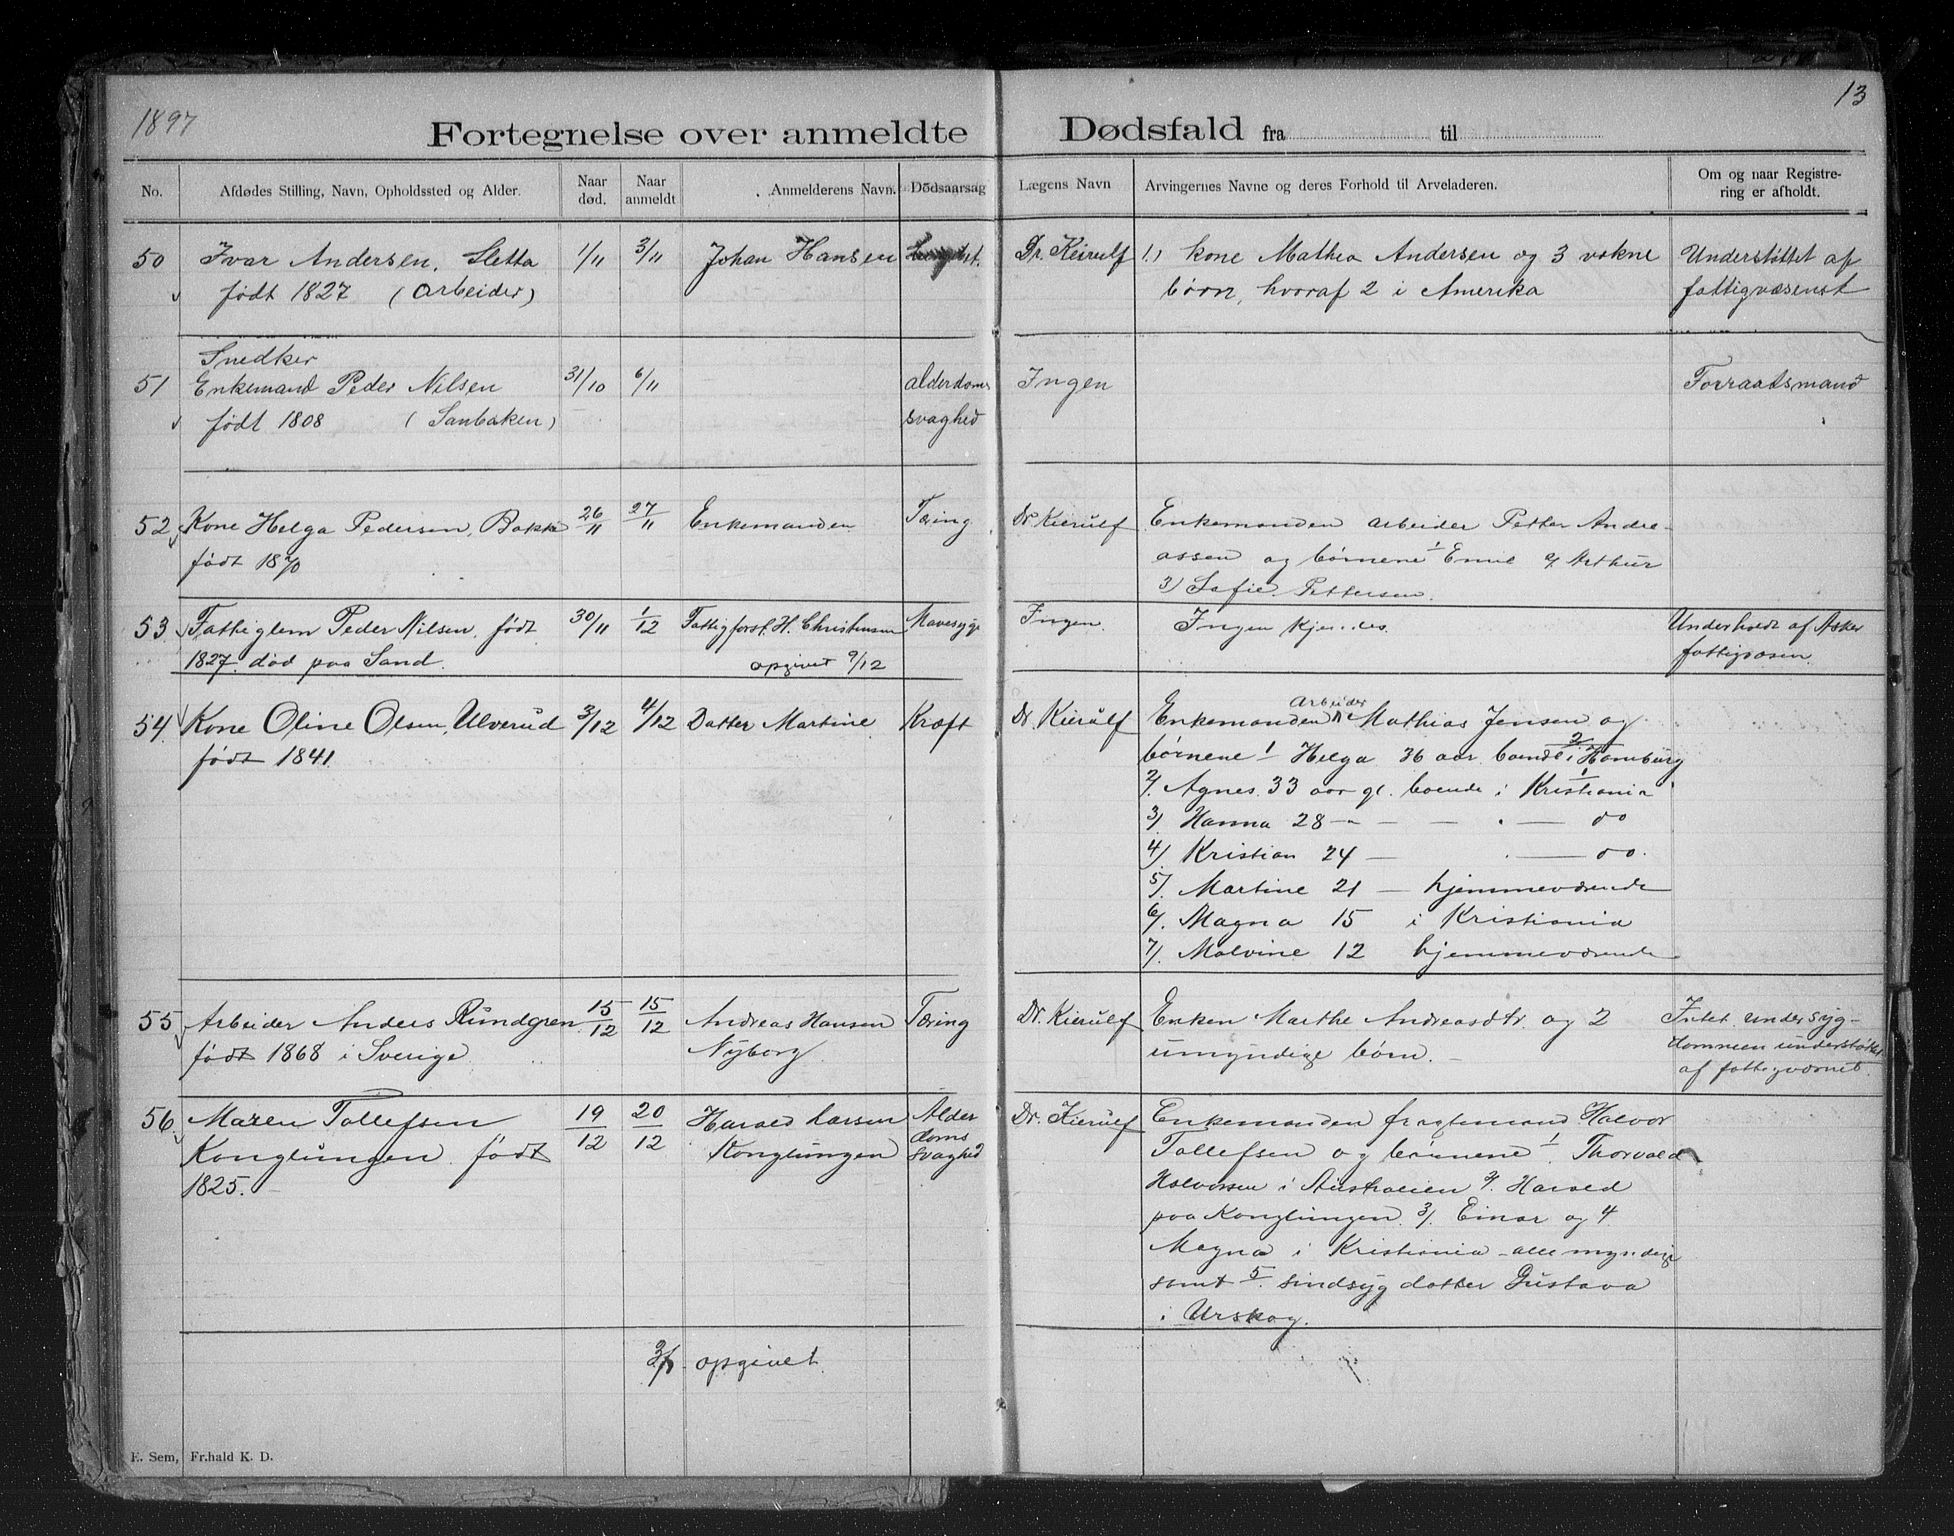 1897
13
Fortegnelse over anmeldte Dødsfald fra til
No. Afdødes Stilling, Navn, Opholdssted og Alder. Naar død. Naar anmeldt Anmelderens Navn. Dødsaarsag Lægens Navn Arvingernes Navne og deres Forhold til Arveladeren. Om og naar Registrering er afholdt.
50 Ivar Andersen, Sletta 1/11 3/11 Johan Hansen Dr. Keirulf 1.) kone Mathea Andersen og 3 voksne Understøttet af
født 1827 (Arbeider) børn, hvoraf 2 i Amerika fattigvæsenet
Snedker
51 Enkemand Peder Nilsen 31/10 6/11 alderdoms Ingen Forraadsmand
født 1808 (Sanbakken) svaghed
52 Kone Helga Pedersen, Bakke 26/11 27/11 Enkemanden Tæring Dr Kierulf Enkemanden arbeider Petter Andre-
født 1870 assen og børnene 1 Emil 2/ Arthur
3) Sofie Pettersen.
53. Fattiglem Peder Nilsen, født 30/11 1/12 Fattigforst. H. Christensen Mavesyge Ingen. Ingen kjendes. Underholdt af Asker
1827. død paa Sand. opgivet 9/12 fattigvæsen.
54. Kone Oline Olsen, Ulverud 3/12 4/12 Datter Martine Kræft Dr. Kierulf Enkemanden Arbeider Mathias Jensen og
født 1841 børnene 1 Helga 36 aar boende i Homburg
2/. Agnes 33 aar gl. boende i Kristiania
3/ Hanna 28 — " — — " — do
4/. Kristian 24 — — do.
5/. Martine 21 — hjemmeværende
6/. Magna 15 i Kristiania
7/. Malvine 12 hjemmeværende
55 Arbeider Anders Rundgren 15/12 15/12 Andreas Hansen Tæring Dr. Kierulf Enken Marthe Andreasdtr og 2 Intet. under syg-
født 1868 i Sverige Nyborg umyndige børn. dommen understøttet
af fattigvæsnet.
56 Maren Tollefsen 19/12 20/12 Harald Larsen Alder Dr. Kierulf Enkemanden fragtemand Halvor
Konglungen født Konglungen doms Tollefsen og børnene 1. Thorvald
1825. svaghed Halvorsen i Australien 2/. Harald
paa Konglungen. 3/. Einar og 4
Magna i Kristiania - alle myndige
samt 5. sindsyg datter Gustava
i Urskog.
opgivet
E. Sem, Fr.hald K. D.